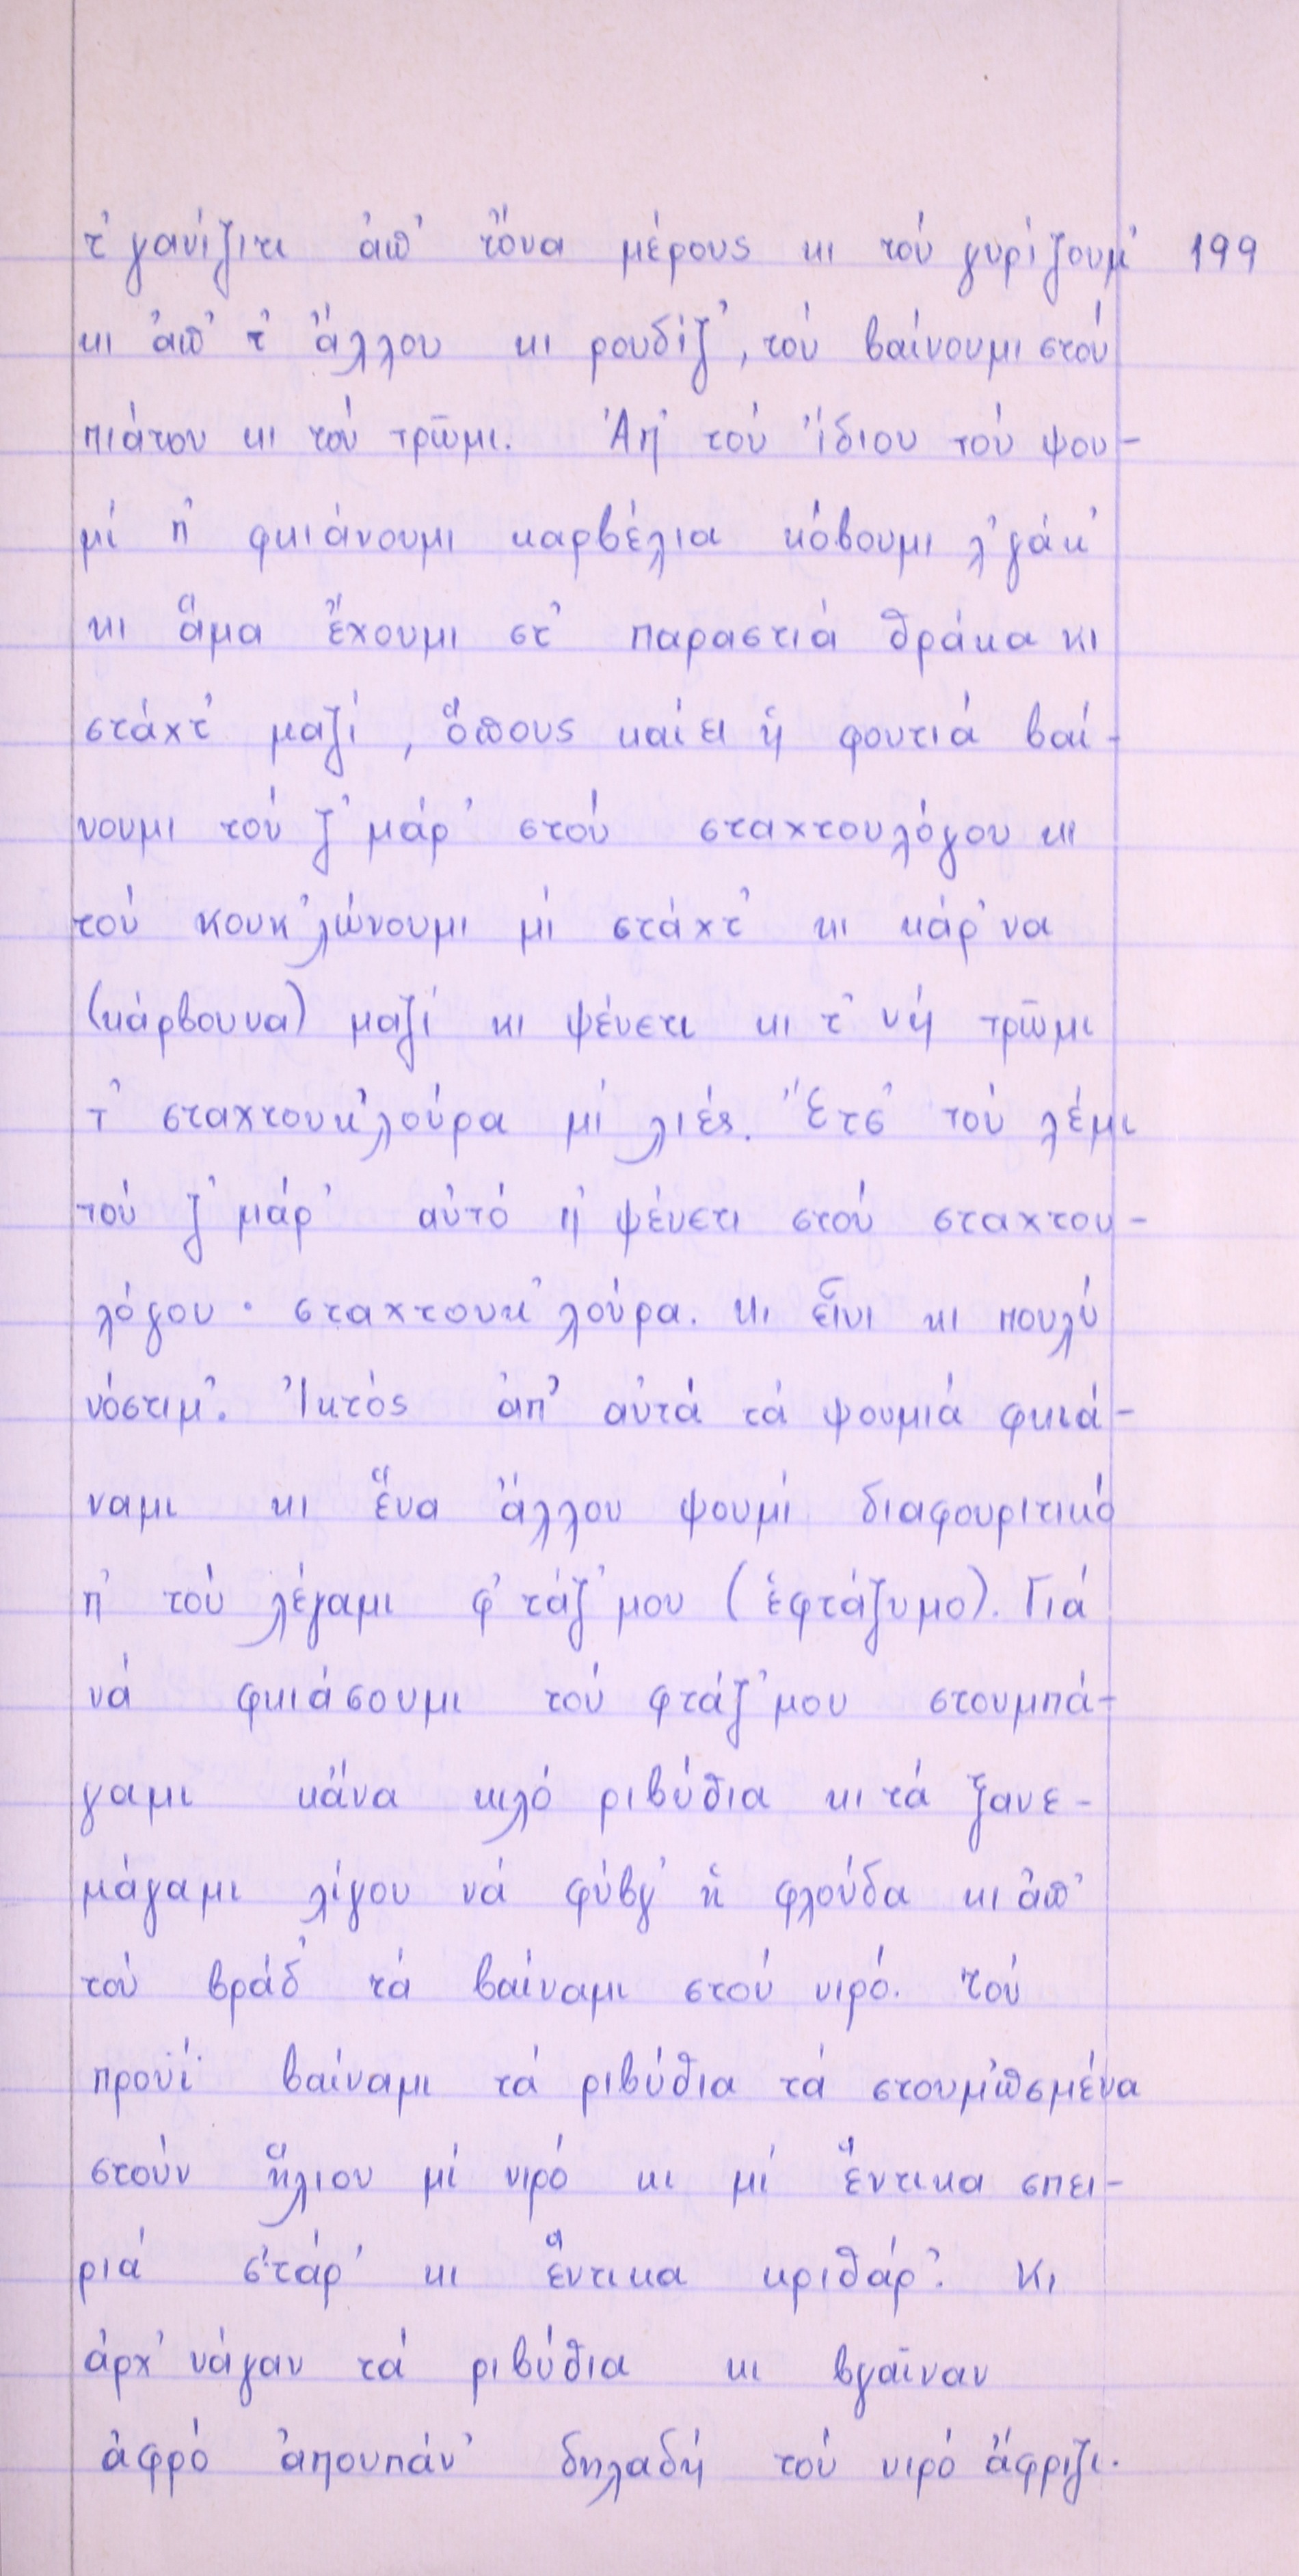 τ' γανίζιτι ἀπ' τὅνα μέρους κι τού γυρίζουμ' 199
κι ἀπ' τ' ἄλλου κι ρουδίζ', τού βαίνουμι στού
πιάτου κι τού τρῶμι. Ἀπ' τού ἴδιου τού ψου-
μί π' φκιάνουμι καρβέλια κόβουμι λ'γάκ'
κι ἅμα ἔχουμι στ' παραστιά θράκα κι
στάχτ' μαζί, ὅπους καίει ἡ φουτιά βαί-
νουμι τού ζ'μάρ' στού σταχτουλόγου κι
τού κουκ'λώνουμι μί στάχτ' κι κάρ'να
(κάρβουνα) μαζί κι ψένετι κι τ' νή τρῶμι
τ' σταχτουκ'λούρα μί λιές. Ἔτσ' τού λέμι
τού ζ'μάρ' αὐτό π' ψένετι στού σταχτου-
λόγου· σταχτουκ'λούρα. κι εἶνι κι πουλύ
νόστιμ'. Ἰκτὸς ἀπ' αὐτά τά ψουμιά φκιά-
ναμι κι ἕνα ἄλλου ψουμί διαφουριτικό
π' τού λέγαμι φ'τάζ'μου (ἑφτάζυμο). Γιά
νά φκιάσουμι τού φτάζ'μου στουμπά-
γαμι κἄνα κιλό ριβύθια κι τά ξανε-
μάγαμι λίγου νά φύβγ' ἡ φλούδα κι ἀπ'
τού βράδ' τά βαίναμι στού νιρό. Τού
προυΐ βαίναμι τά ριβύθια τά στουμπσμένα
στούν ἥλιου μί νιρό κι μί ἕντικα σπει-
ριά σ'τάρ' κι ἕντικα κριθάρ'. Κι
ἀρχ'νάγαν τά ριβύθια κι βγαῖναν
ἀφρό ἀπουπάν' δηλαδή τού νιρό ἄφριζι.